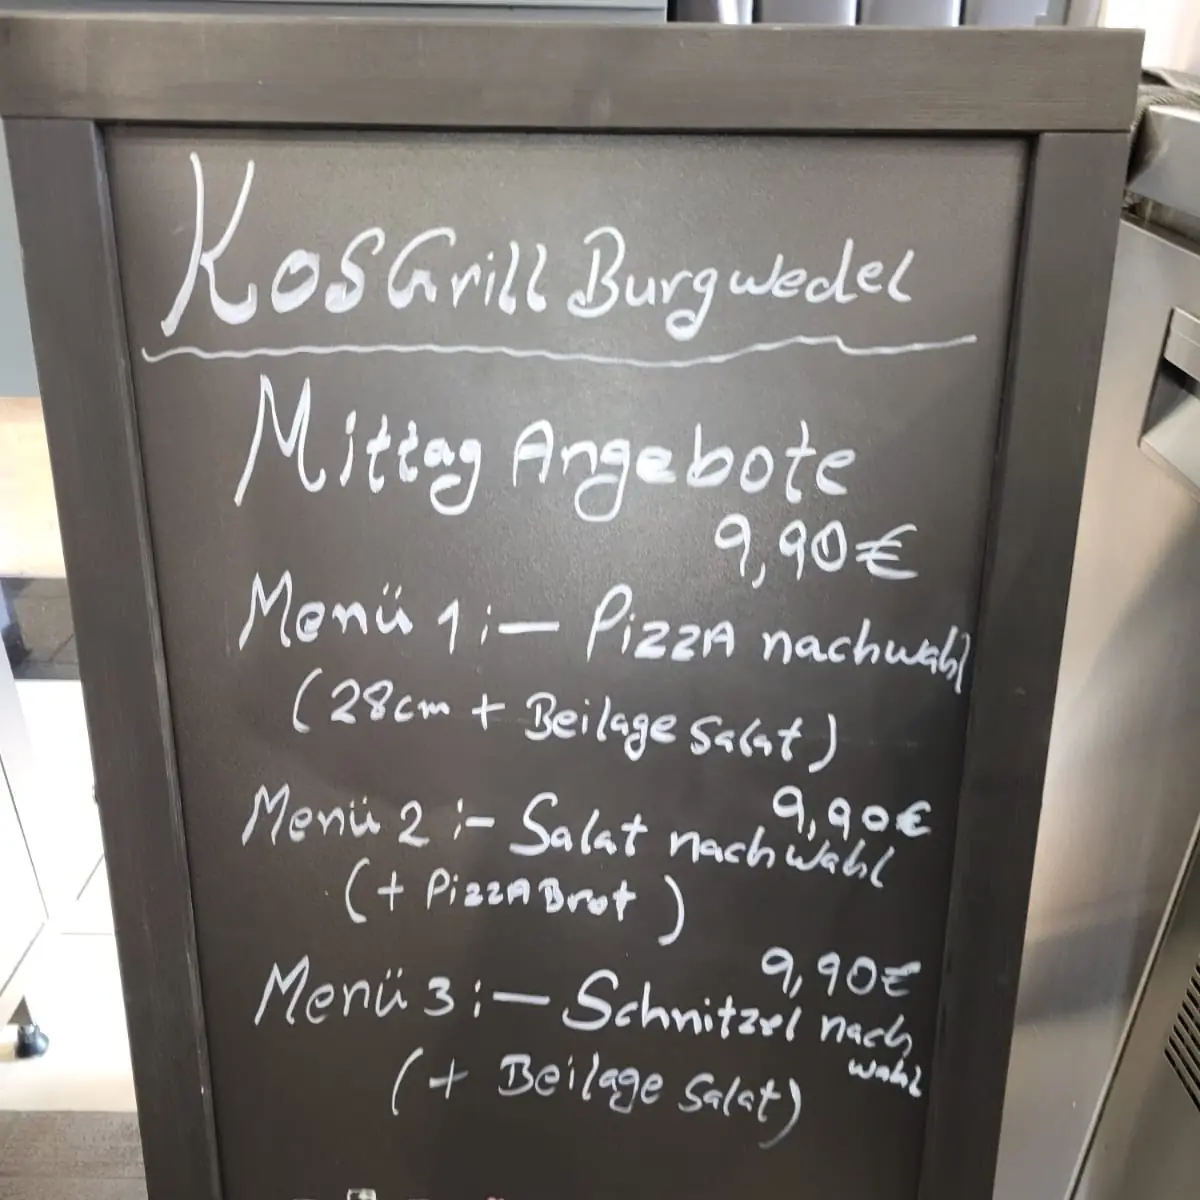 KosGrill Burgwedel
Mittag Angebote
9,90€
Menü 1:- Pizza nachwahl
(28cm + Beilage Salat)
9,90€
Menü 2:- Salat nachwahl
(+ PizzaBrot)
9,90€
Menü 3:- Schnitzel nach
wahl
(+ Beilage Salat)